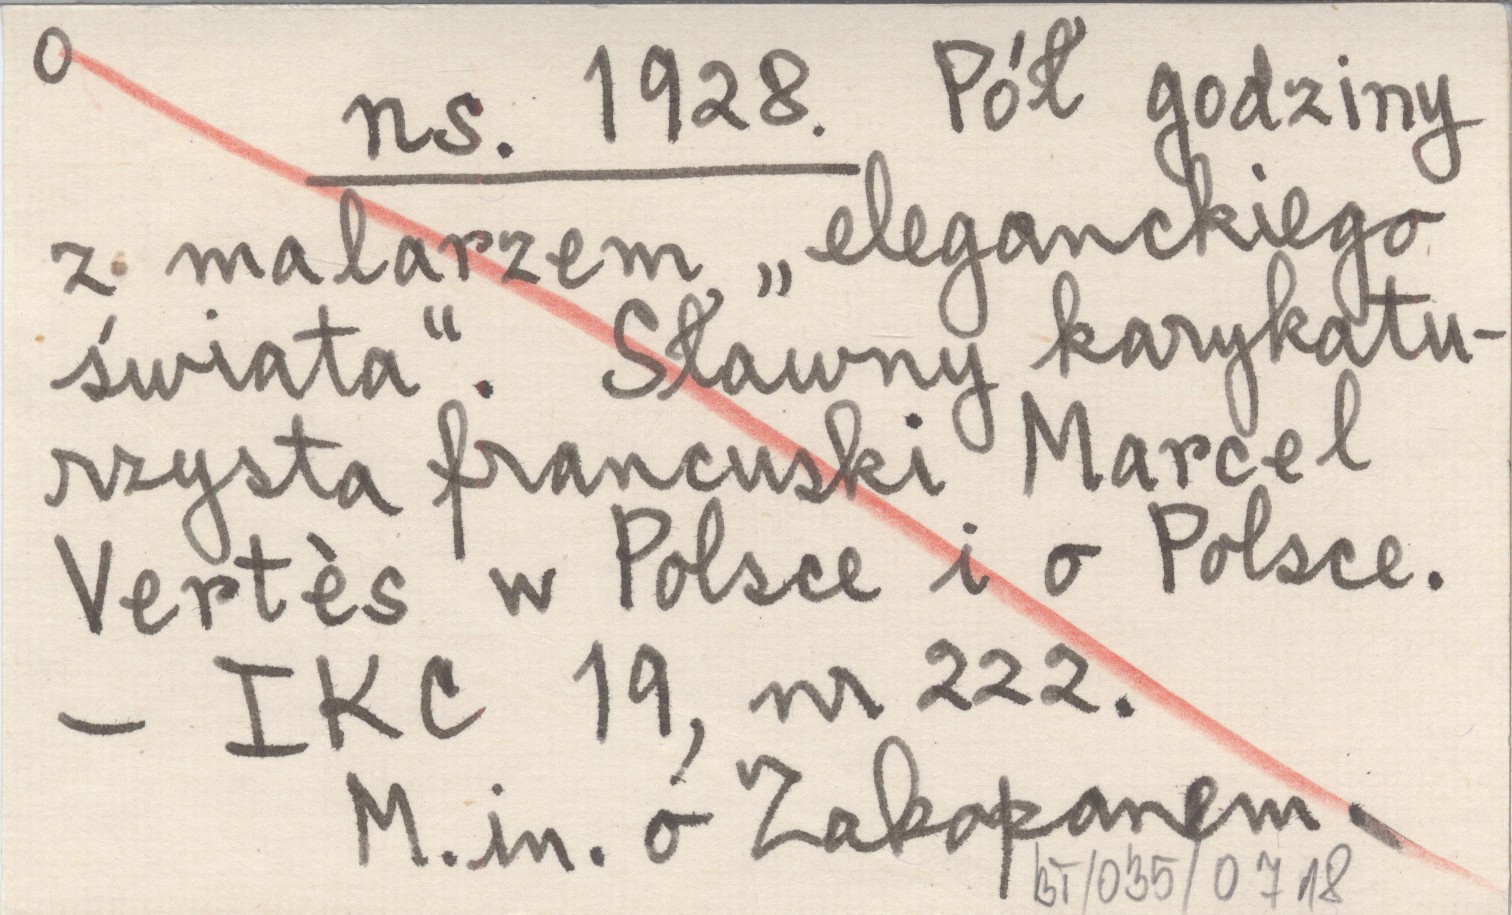 O
ns. 1928. Pół godziny
z malarzem „eleganckiego
świata“. Sławny karykatu-
rzysta francuski Marcel
Vertès w Polsce i o Polsce.
— IKC 19, nr 222.
M.in. o Zakopanem.
BT/035/0718